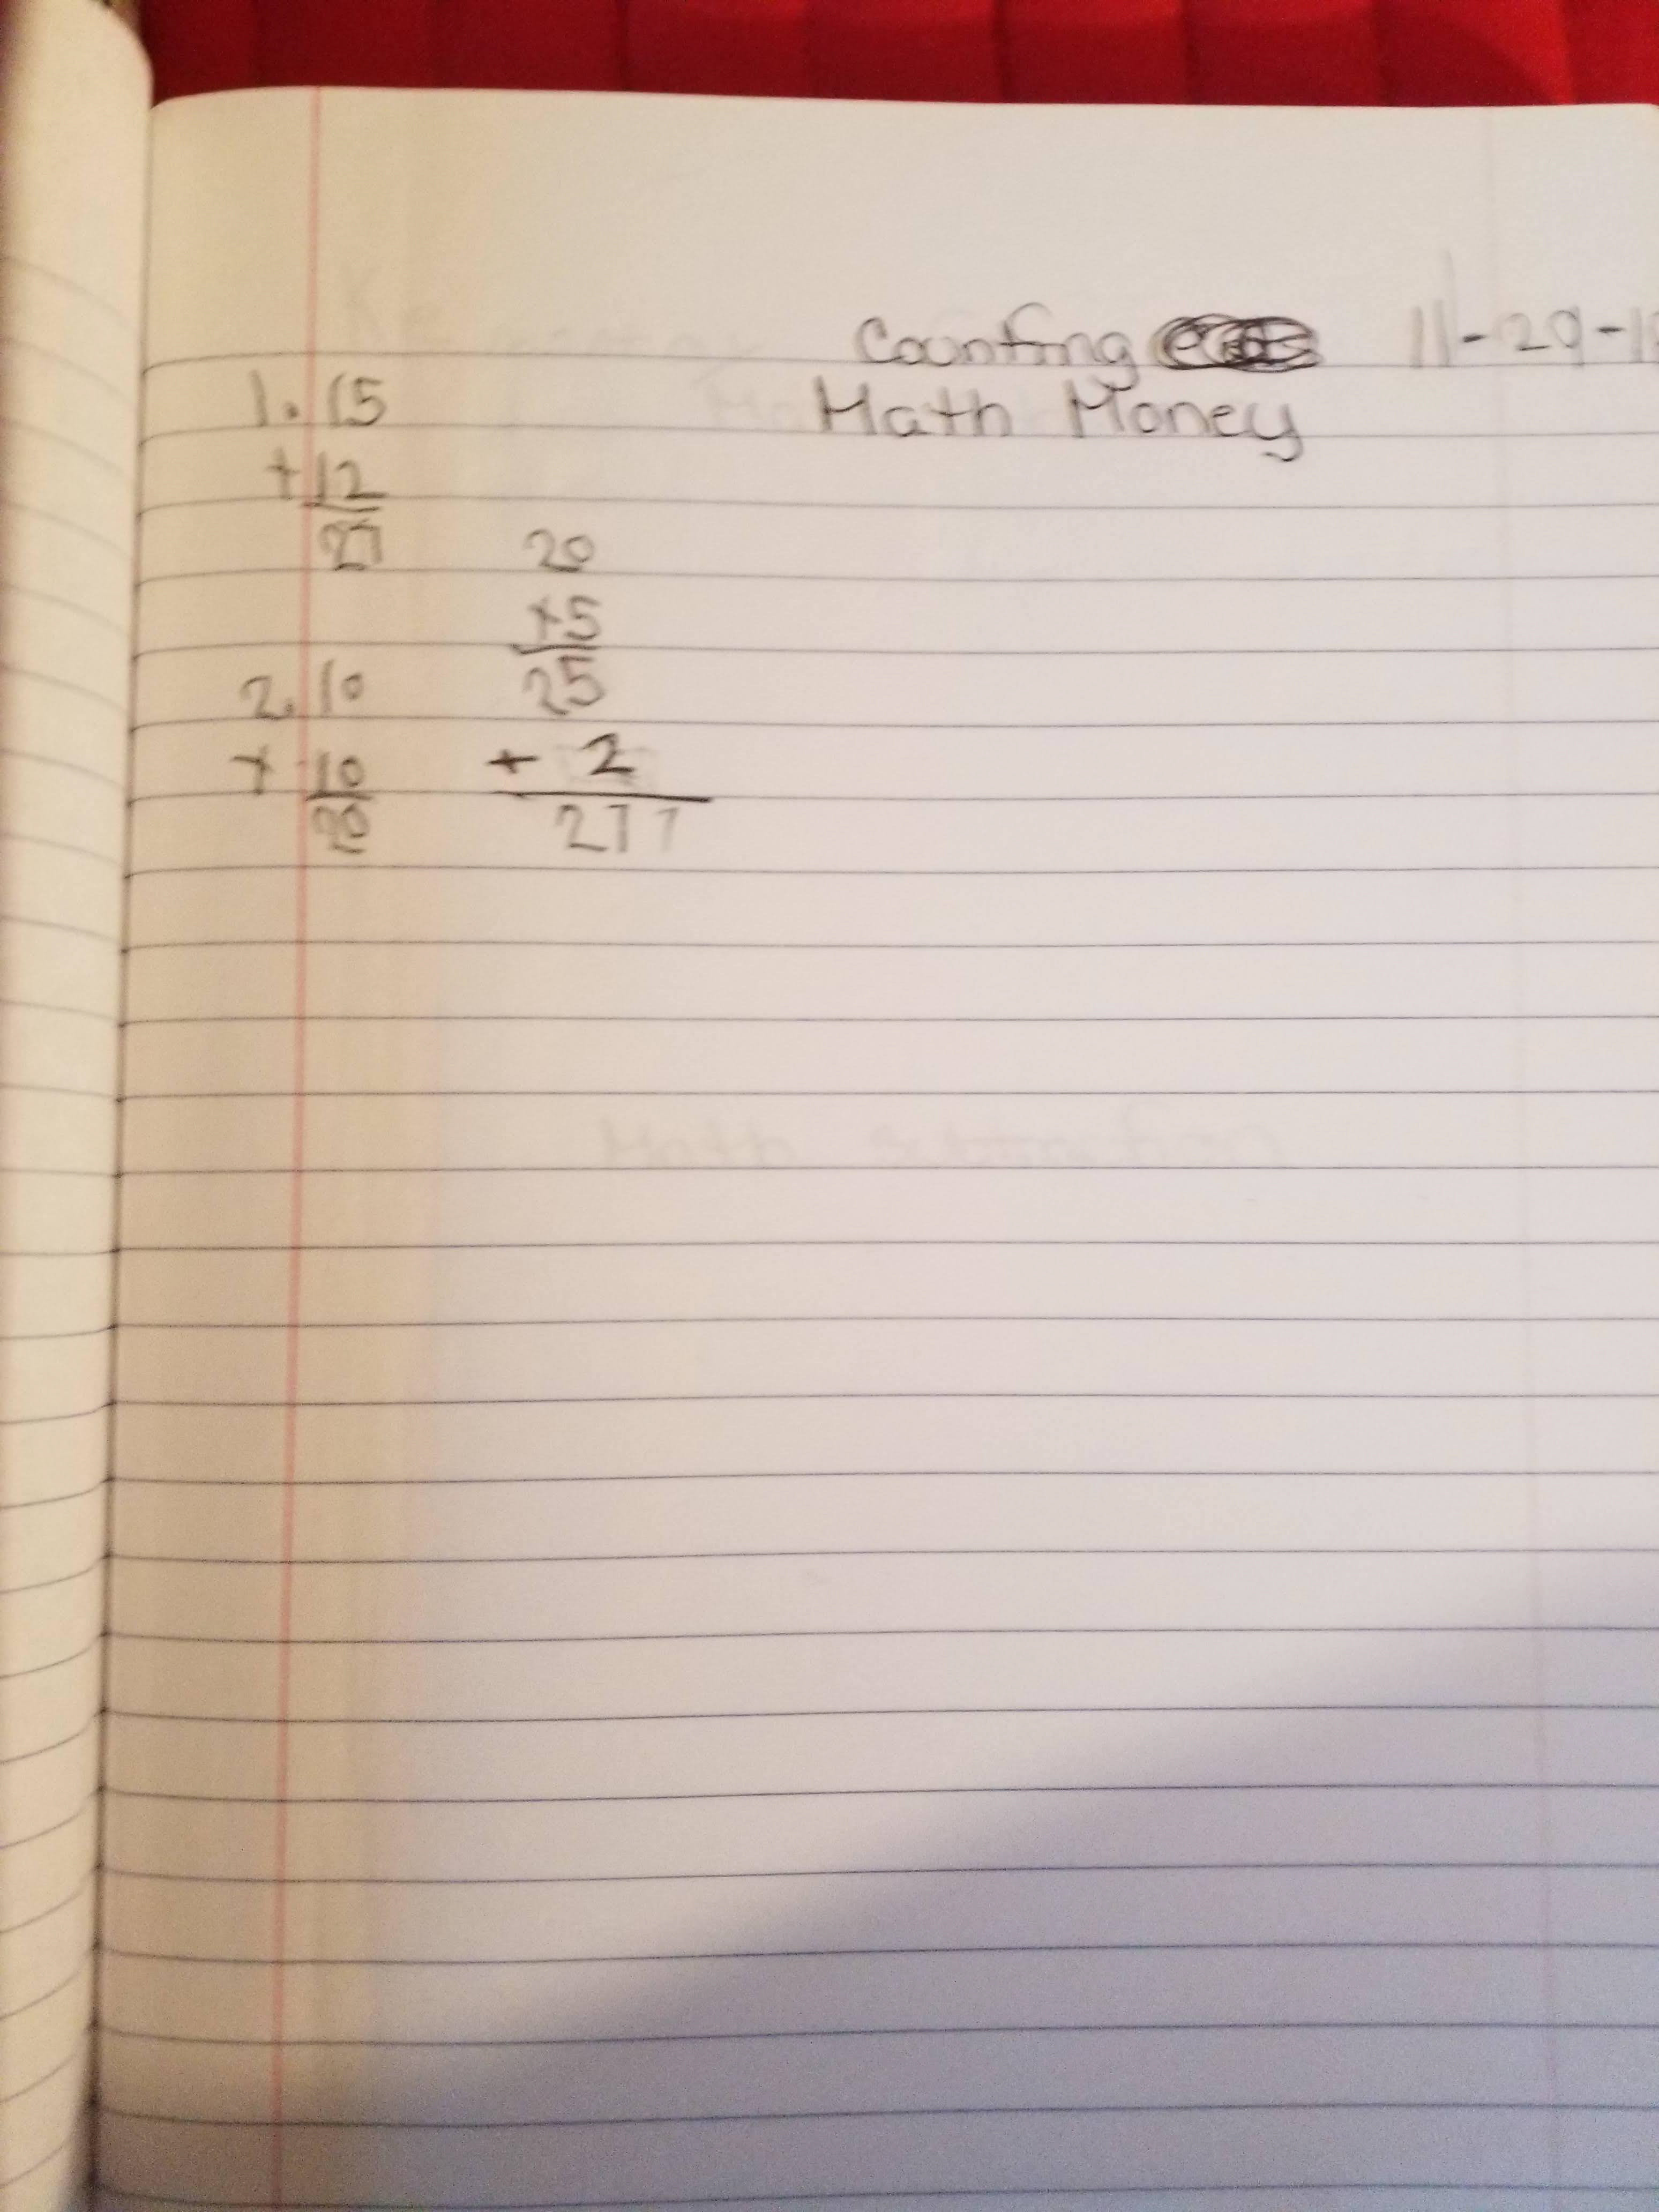 Counting 11-29-1
Math Money
1. 15
+ 12
27
20
+5
25
2. 10
+ 10
20
+ 2
277